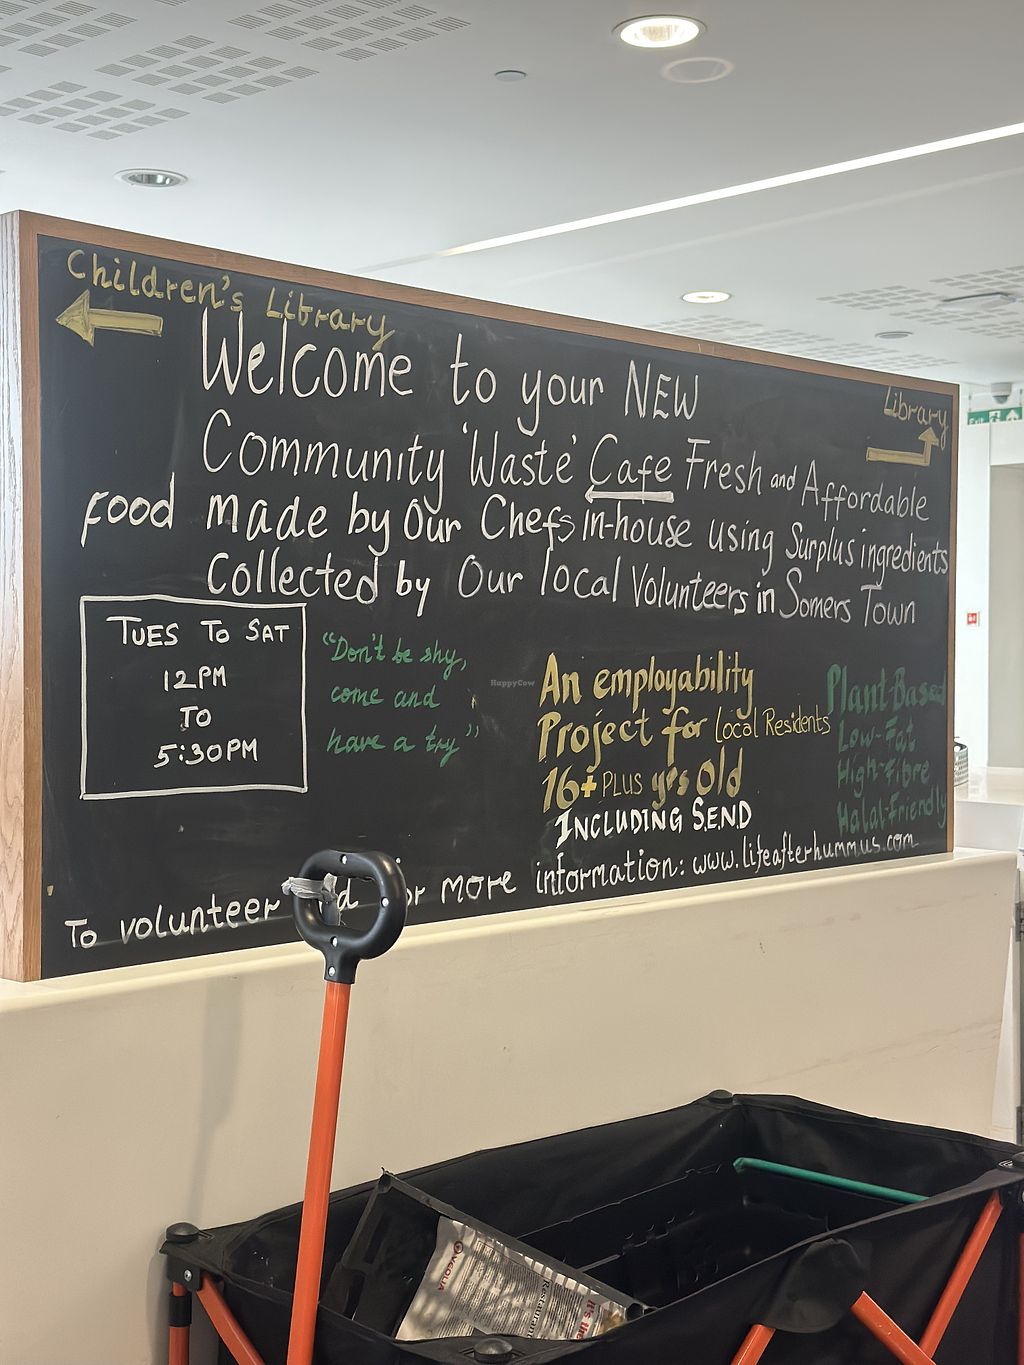 Children's Library
Library
Welcome to your NEW
Community 'Waste' Cafe Fresh and Affordable
Food made by Our Chefs in-house using Surplus ingredients
Collected by Our local Volunteers in Somers Town
TUES TO SAT
12PM
TO
5:30PM
"Don't be shy,
come and
have a try"
An employability
Project for local Residents
16+ PLUS yrs Old
INCLUDING S.E.N.D
Plant-Based
Low-Fat
High-Fibre
Halal-Friendly
To volunteer or more information: www.lifeafterhummus.com
HappyCow
Exit
VEOLIA
Restaurant